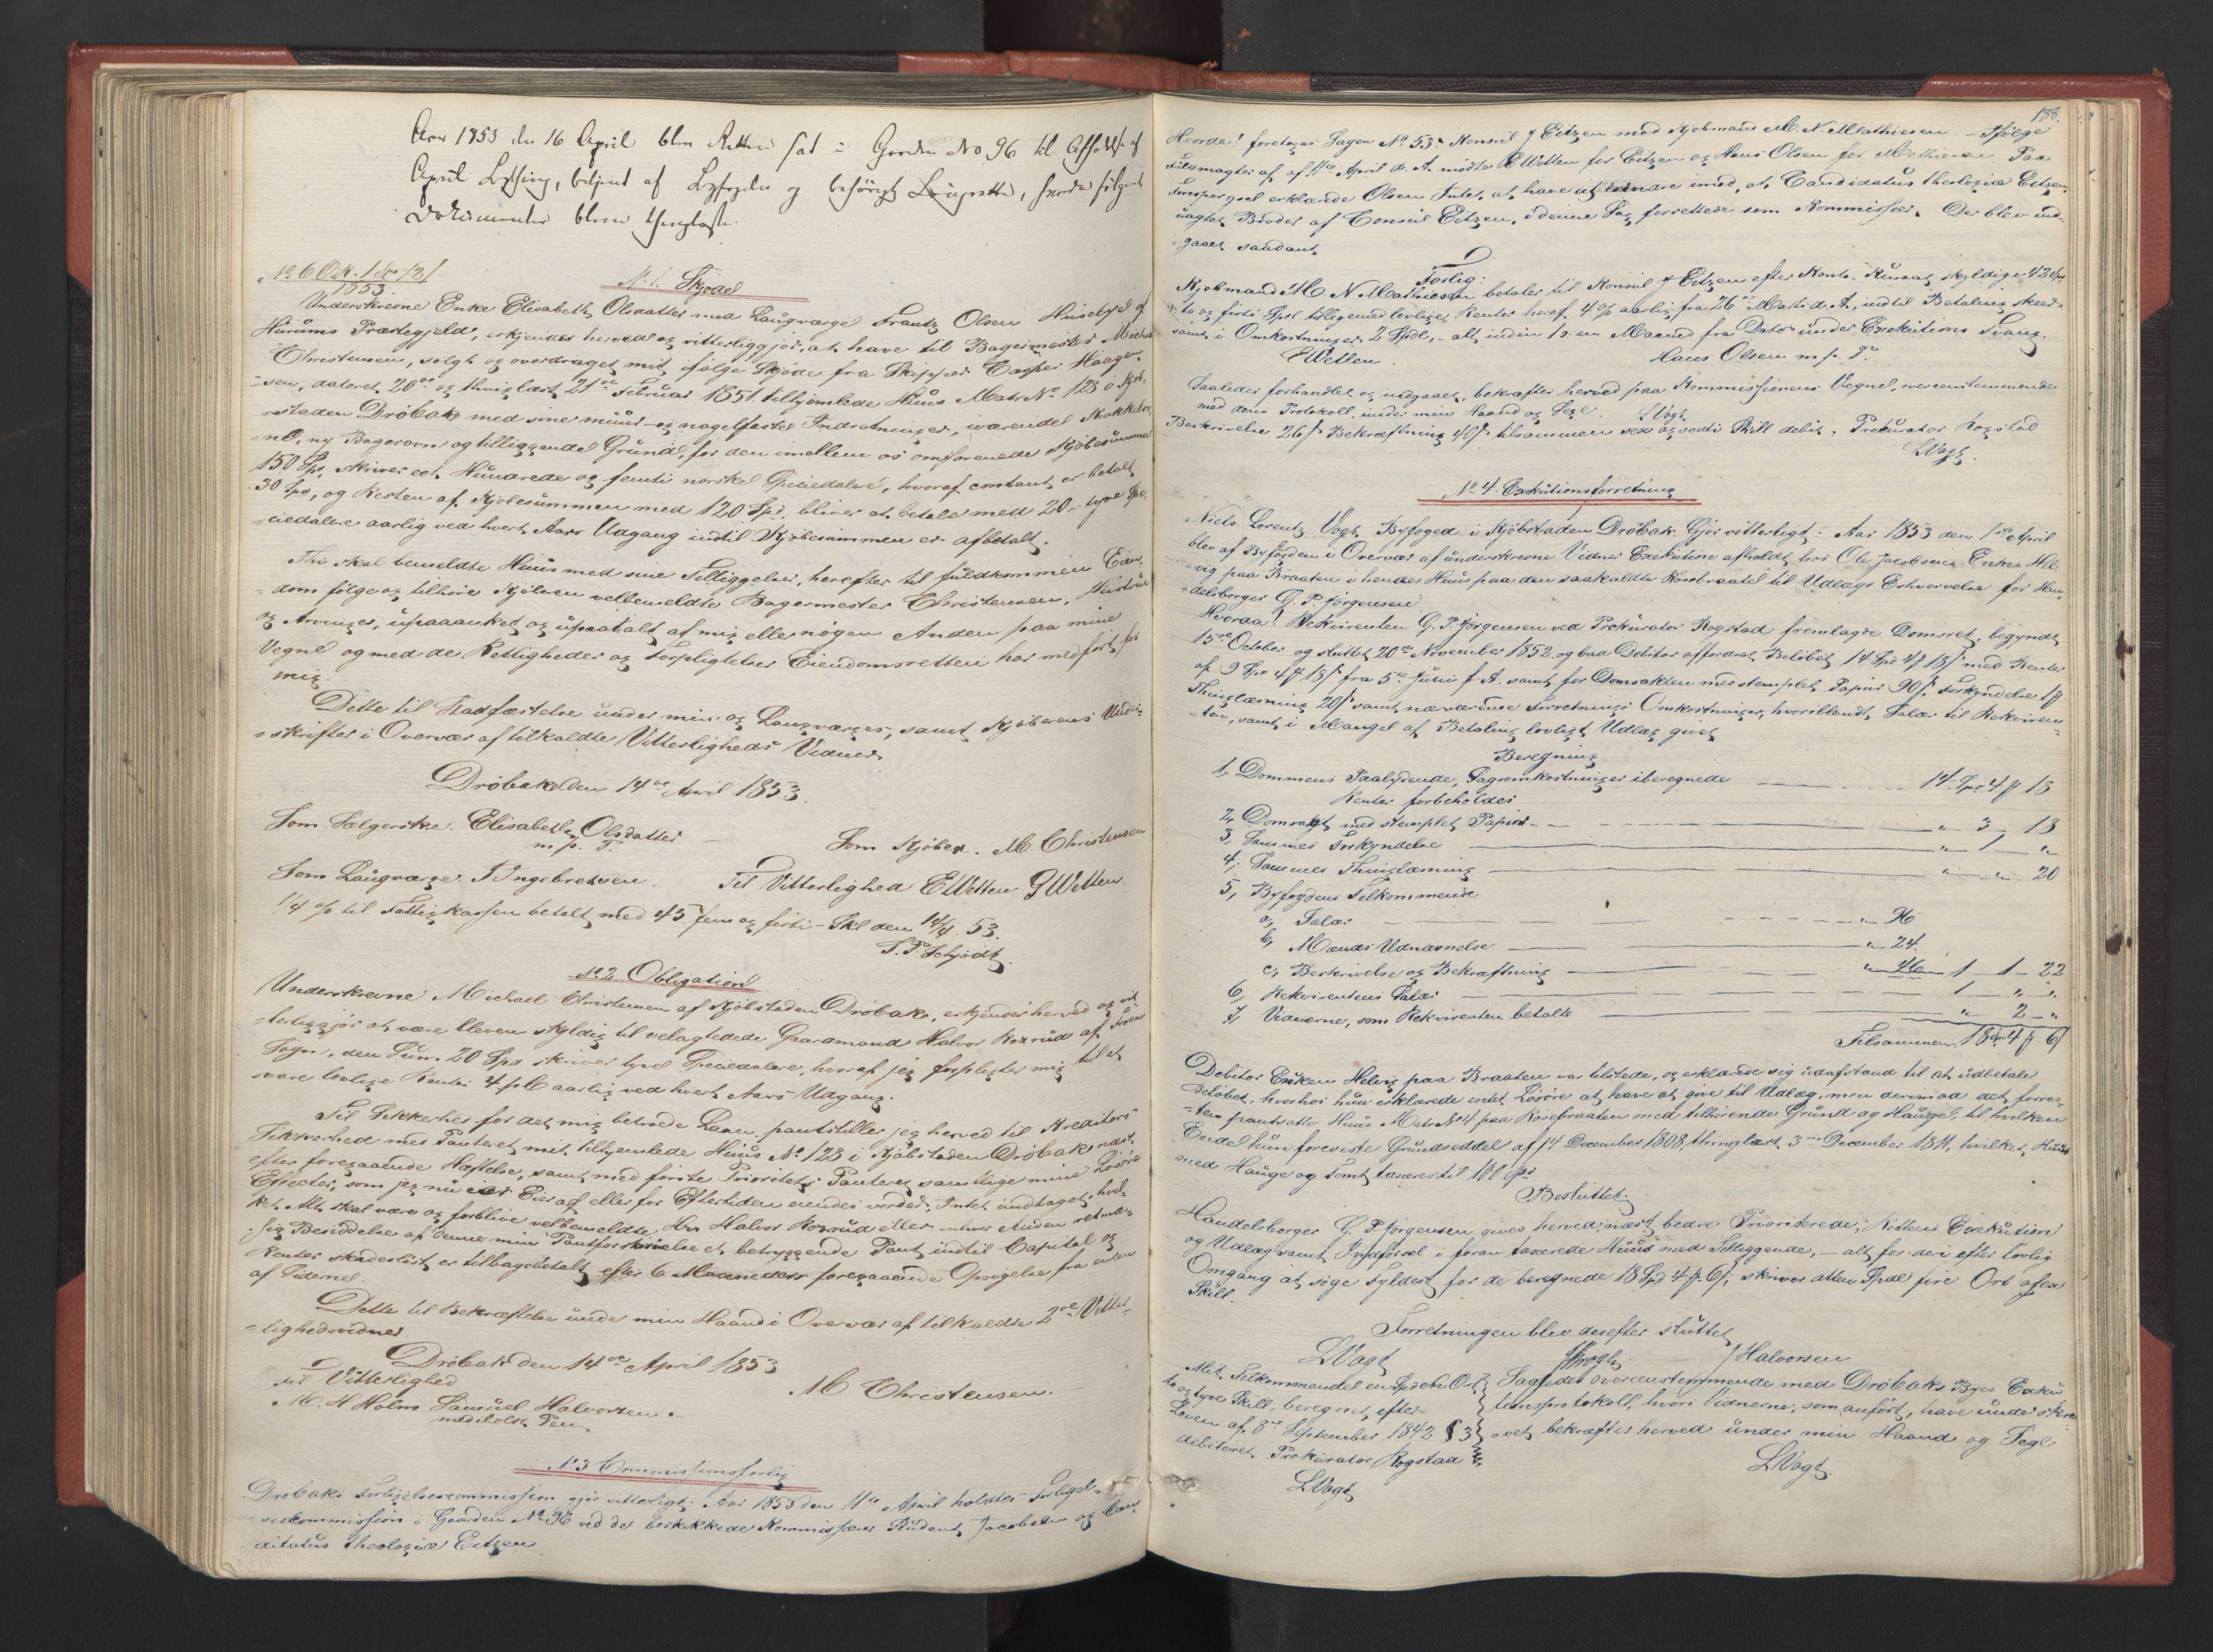 Aar 1853 den 16 April blev Retten sat i Gaarden No 96 til Afholdelse af
April Bything, betjent af Byfogden og behörigt Laugrette, hvorda fölgende
Dokumenter bleve thinglæste.
No 6 O.R. 1 Sp 12/
1853.
No 1. Skjöde
Underskrevne Enke Elisabeth Olsdatter med Laugværge Frantz Olsen Huseby af
Hurums Præstegjeld, erkjender herved og vitterliggjör, at have til Bagermester Michael
Christensen, solgt og overdraget mit ifölge Skjöde fra Skipper Casper Haager-
-sen, dateret 20de og thinglæst 21de Februar 1851 tilhjemlede Huus Matr No 123 i Kjöb-
-staden Dröbak med sine muur- og nagelfaste Indretninger, værende Kakkelov-
-ne, ny Bagerovn og tilliggende Grund, for den imellem os omforenede Kjöbesumma
150 Spd, skriver eet Hundrede og femti norske Speciedalere, hvoraf contant er betalt
30 Spd, og Resten af Kjöbesummen med 120 Spd. bliver at betale med 20 - tyve Spe-
-ciedalere aarlig ved hvert Aars Udgang indtil Kjöbesummen er afbetalt.
Thi skal bemeldte Huus med sine Tilliggelser, herefter til fuldkommen Eien-
-dom fölge og tilhöre Kjöberen velbemeldte Bagermester Christensen, Hustru
og Arvinger, upaaanket og upaatalt af mig eller nogen Anden paa mine
Vegne og med de Rettigheder og Forpligtelser Eiendomsretten har medfört for
mig.
Dette til Stadfæstelse under min og Laugværges, samt Kjöberens Under-
-skrifter i Overvær af tilkaldte Vitterligheds Vidner.
Dröbak den 14de April 1853.
Som Sælgerske. Elisabeth Olsdatter Som Kjöber. M. Christensen
m. p. P.
Som Laugværge. F Ingebretsen. Til Vitterlighed E Wetten G Wetten.
1/4 % til Fattigkassen betalt med 45 fem og firti - Skl den 14/4. 53.
T. P. Schjödt.
No 2 Obligation
Underskrevne Michael Christensen af Kjöbstaden Dröbak, erkjender herved og vit-
-terliggjör at være bleven skyldig til velagtede Gaardmand Halvor Roxrud af Froens
Sogn, den Sum 20 Spd skriver tyve Speciedalere, hvoraf jeg forpligter mig til at
svare lovlige Renter 4 pC aarlig ved hvert Aars Udgang.
Til Sikkerhed for det mig betroede Laan, pantstiller jeg herved til Kreditors
Sikkerhed med Panteret mit tilhjemlede Huus No 123 i Kjöbstaden Dröbak næst
efter foregaaende Hæftelse, samt med förste Prioritets Panteret samtlige mine Lösöre
Effecter, som jeg nu er Eier af eller for Eftertiden eiendes vorder, Intet undtaget, hvil-
ket Alt skal være og forblive velbemeldte Hr Halvor Roxrud eller enhver Anden retmæs-
-sig Besiddelse af denne min Pantforskrivelse et betryggende Pant indtil Capital og
Renter skadeslöst er tilbagebetalt efter 6 Maaneders foregaaende Opsigelse fra enten
af Siderne.
Dette til Bekræftelse under min Haand i Overvær af tilkaldte 2de Vitter-
-lighedsvidner.
Dröbak den 14de April 1853
Til Vitterlighed
M Christensen.
M. H Holm Samuel Halvorsen.
med iholdt Pen
No 3 Commissionsforlig
Dröbaks Forligelsescommission gjör vitterligt: Aar 1853 den 11te April holdtes Forligel-
-seskommission i Gaarden No 96 ved de beskikkede Kommissærer Student Jacobsen og Can-
-didatus theologiæ Eitzen
188.
Hvorda! foretoges Sagen No 53. Konsul J Eitzen mod Kjöbmand M. N. Mathiesen. - Ifölge
Fuldmagter af 11te April d. A. mödte E Wetten for Eitzen og Hans Olsen for Mathiesen Paa
Forespörgsel erklærede Olsen Intet at have at erindre imod, at Candidatus theologiæ Eitzen,
uagtet Broder af Consul Eitzen, i denne Sag forrettede som Kommissær. Der blev ind-
gaaet saadant
Forlig:
Kjöbmand M N Mathiesen betaler til Konsul J Eitzen efter Konto-Kurant skyldige 42 Spd
- to og firti Spd tilligemed lovlige Renter heraf 4 % aarlig fra 26de Marts d. A., indtil Betaling skeer
samt i Omkostninger 2 Spdl, - alt inden 1 - en Maaned fra Dato under Exekutions Tvang.
E Wetten. Hans Olsen m. p. P.
Saaledes forhandlet og indgaaet, bekræftes herved paa Kommissionens Vegne, overeenstemmende
med dens Protokoll, under min Haand og Segl. LVogt
Beskrivelse 26 s Bekræftning 40 s tilsammen sex og sexti Skill debit. Prokurator Rogstad
LVogt.
No 4. Exekutionsforretning
Niels Lorentz Vogt, Byfoged i Kjöbstaden Dröbak Gjör vitterligt: Aar 1853 den 1ste April
blev af Byfogden i Overvær af underskrevne Vidner Exekution afholdt hos Ole Jacobsens Enke Hel-
vig paa Braaten i hendes Huus paa den saakaldte Korsbraate til Udlægs Erhvervelse for Han-
-delsborger G. P. Jörgensen.
Hvorda! Rekvirenten G. P. Jörgensen ved Prokurator Rogstad fremlagde Domsret, begyndt
15de October og sluttet 20de November 1852 og bad Debitor affordret Belöbet 14 Spd 4 # 13 s med Renter
af 9 Spd 4 # 15 s fra 5te Julii f. A. samt for Domsakten med stemplet Papiir 90 s, Forkyndelse 1 #
Thinglæsning 20 s samt nærværende Forretnings Omkostninger, hvoriblandt Salær til Rekviren-
-ten, samt i Mangel af Betaling lovligt Udlæg givet
Beregning
1, Dommens Paalydende, Sagsomkostninger iberegnede 14 Spd 4 # 13
Renter forbeholdes
2, Domsagt med stemplet Papiir - " 3 - 13
3, Sammes Forkyndelse " 1 "
4, Sammes Thinglæsning " " 20
5, Byfogdens Tilkommende
a, Salær " 36
b, Mænds Udnævnelse " 24.
c, Beskrivelse og Bekræftning " 46 - 1 - 1 - 22
6, Rekvirentens Salær 1 " "
7, Vidnerne, som Rekvirenten betalte " 2 - "
Tilsammen 18 Spd 4 # 6 s
Debitor Enken Helvig paa Braaten var tilstede, og erklærede sig udafstand til at udbetale
Belöbet, hvorhos hun erklærede intet Lösöre at have at give til Udlæg, men derimod det forres-
-ten pantsatte Huus Matr No 4 paa Korsbraaten med tilhörende Grund og Hauge, til hvilken
Ende hun foreviste Grundseddel af 14 December 1808, thinglæst 3die December 1811, hvilket Huus
med Hauge og Tomt taxeres til 100 Spd
Besluttet.
Handelsborger G. P Jörgensen gives herved næst bedre Prioriterede, Rettens Exekution
og Udlæg samt Indförsel i foran taxerede Huus med Tilliggende, - alt for deri efter lovlig
Omgang at söge Fyldest for de beregnede 18 Spd 4 # 6 s, skriver atten Spdl fire Ort og sex
Skill.
Forretningen blev derefter sluttet
LVogt JKrogh J Halvorsen
Mit Tilkommende en Spd en Ort Saaledes overeenstemmende med Dröbaks Byes Exeku-
to og tyve Skill, beregnet efter tionsprotokoll, hvori Vidnerne, som anfört, have underskre-
Loven af 8de September 1842 § 3 -vet, bekræftes herved under min Haand og Segl
debiteret Prokurator Rogstad
LVogt.
LVogt